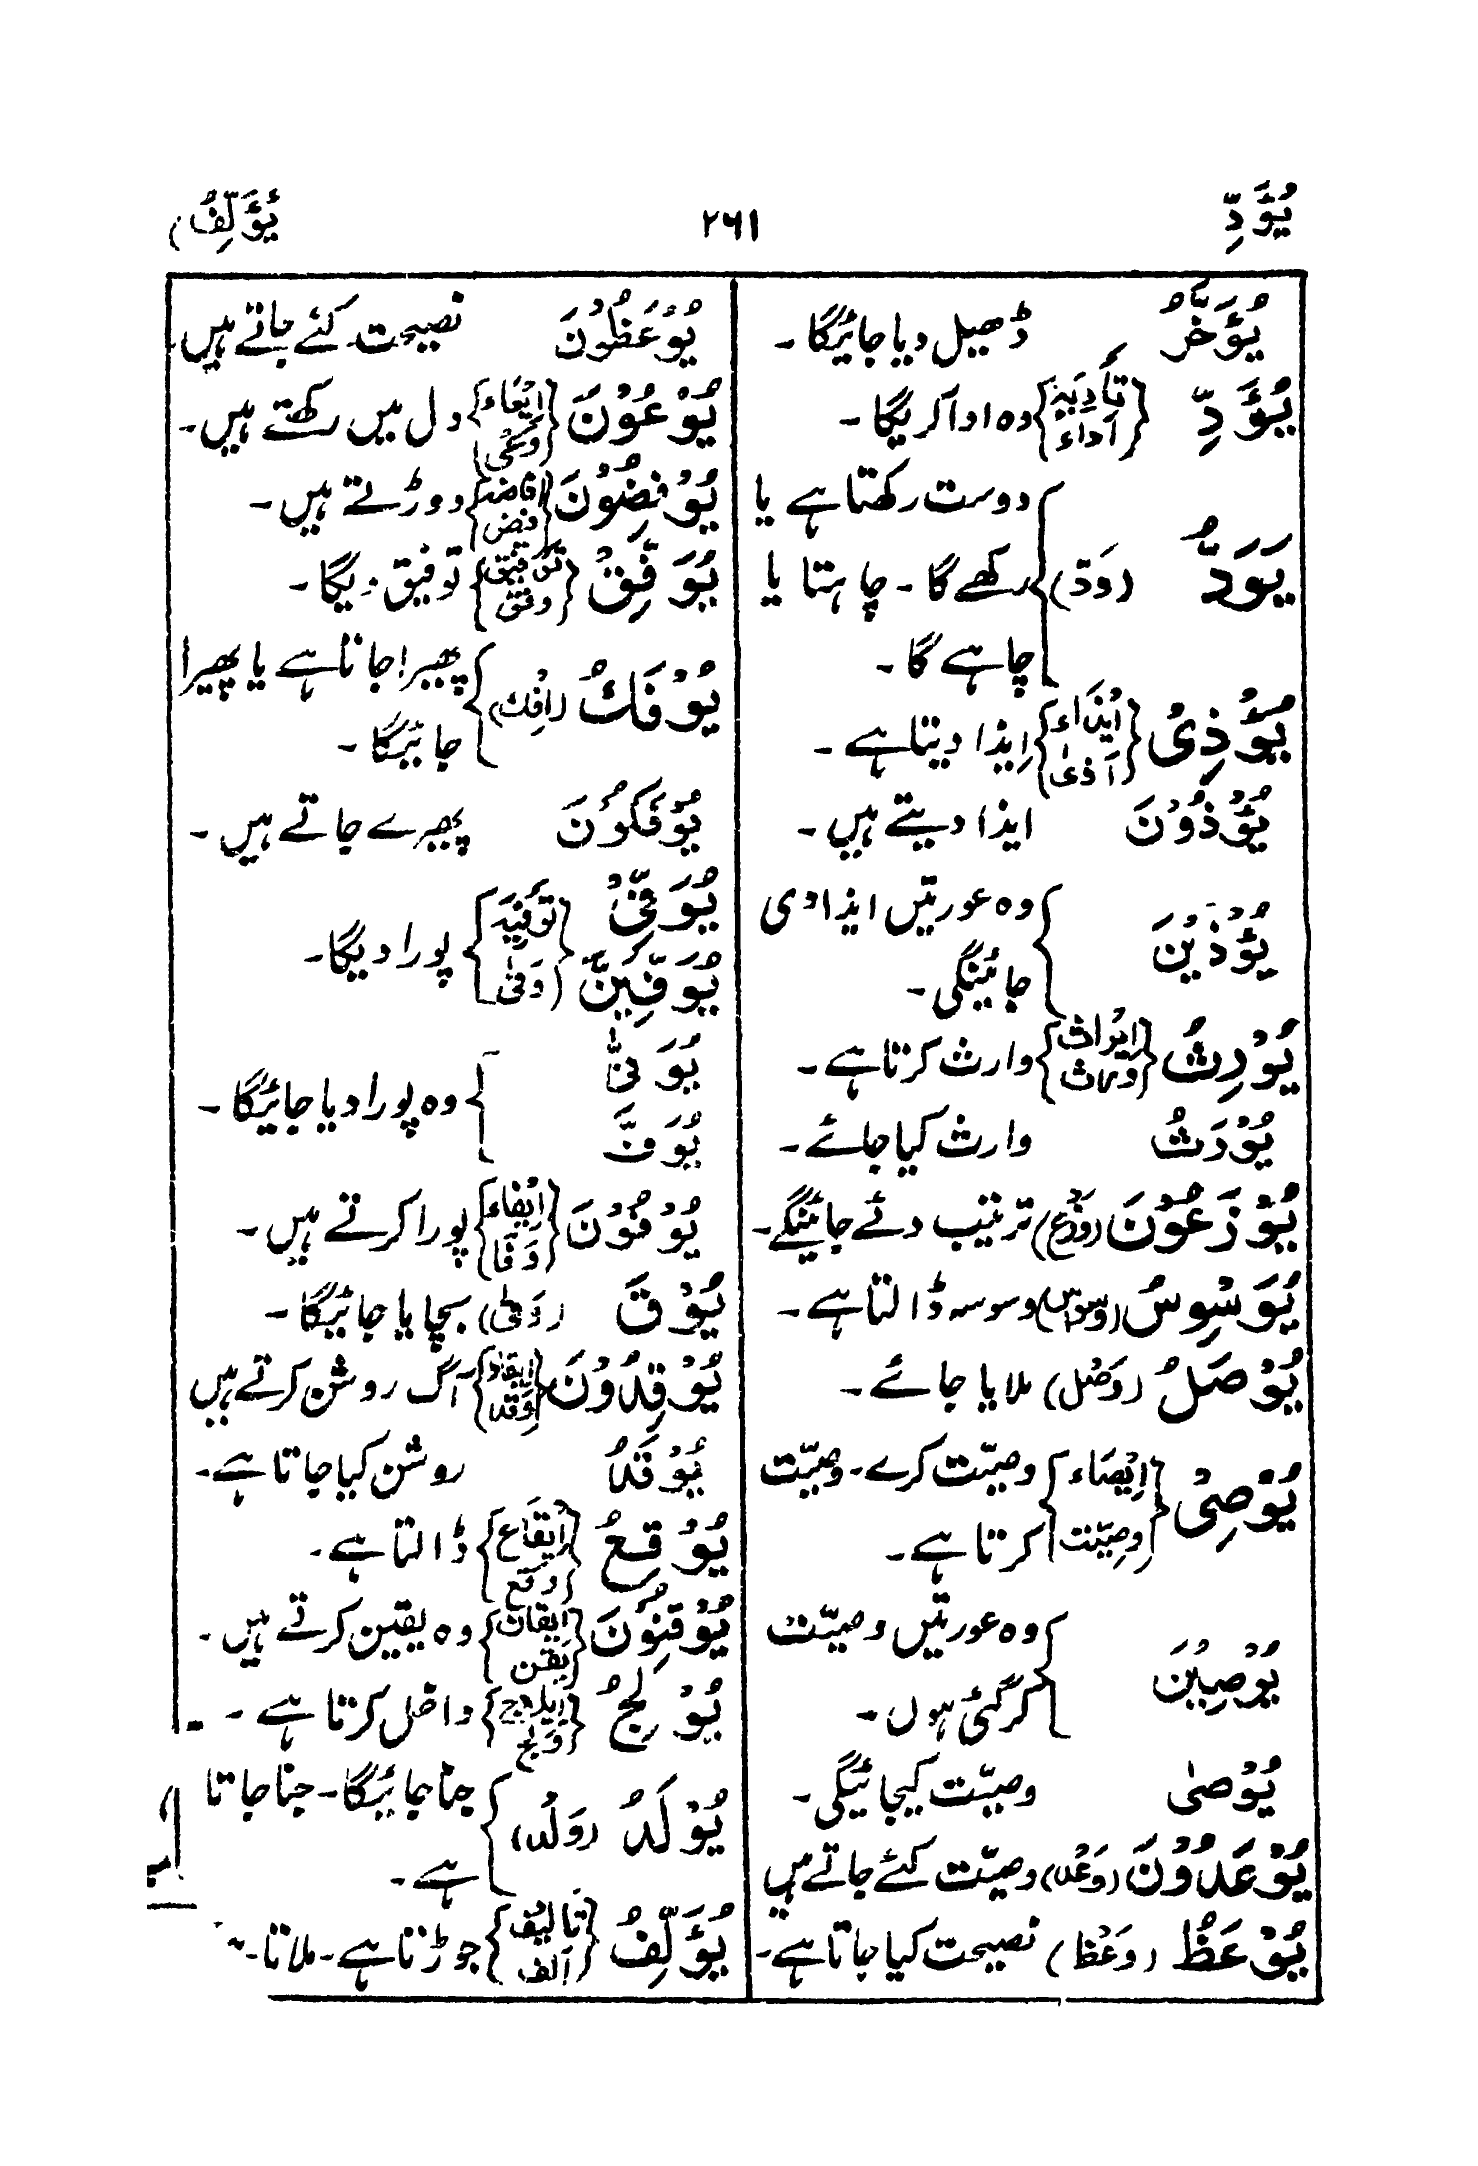 يُؤَدِّ ۲۶۱ يُؤَلِّفُ
يُؤَخَّرُ ڈھیل دیا جائیگا۔
يُؤَدِّ {تَأْدِیَۃ اَداء} وہ ادا کریگا۔
يَوَدُّ (وَدّ) دوست رکھتا ہے یا
رکھے گا۔ چاہتا یا
چاہے گا۔
يُؤْذِیْ {اِیْذَاء اَذیٰ} اِیذا دیتا ہے۔
يُؤْذُوْنَ ایذا دیتے ہیں۔
يُؤْذَيْنَ وہ عورتیں ایذا دی
جائینگی۔
يُوْرِثُ {اِیْرَاث وراث} وارث کرتا ہے۔
يُوْرَثُ وارث کیا جائے۔
يُوْزَعُوْنَ (وَزْع) ترتیب دئے جائینگے۔
يُوَسْوِسُ (وسواس) وسوسہ ڈالتا ہے۔
يُوْصَلُ (وَصْل) ملایا جائے۔
يُوْصِیْ {اِیْصَاء وصیّت} وصیّت کرے۔ وصیّت
کرتا ہے۔
يُوْصِيْنَ وہ عورتیں وصیّت
کر گئی ہوں۔
يُوْصیٰ وصیّت کیجائیگی۔
يُوْعَدُوْنَ (وَعْد) وصیّت کئے جاتے ہیں
يُوْعَظُ (وَعْظ) نصیحت کیا جاتا ہے۔
يُوْعَظُوْنَ نصیحت کئے جاتے ہیں
يُوْعُوْنَ {اِیْعَاء وَعْی} دل میں رکھتے ہیں۔
يُوْفِضُوْنَ {اِفاضہ وفض} دوڑتے ہیں۔
يُوَفِّقُ {تَوْفِیق وفق} توفیق دیگا۔
يُؤْفَكُ (اِفْك) پھیرا جاتا ہے یا پھیرا
جائیگا۔
يُؤْفَكُوْنَ پھیرے جاتے ہیں۔
يُوَفِّیْ {تَوْفِیَہ
يُوَفِّيَنَّ (وَفیٰ) پورا دیگا۔
يُوَفّٰی
يُوَفَّ وہ پورا دیا جائیگا۔
يُوْفُوْنَ {اِیْفَاء وَفَا} پورا کرتے ہیں۔
يُوْقَ (وَقیٰ) بچایا جائیگا۔
يُوْقِدُوْنَ {اِیقاد وَقد} آگ روشن کرتے ہیں
يُوْقَدُ روشن کیا جاتا ہے۔
يُوْقِعُ {اِیْقَاع وقع} ڈالتا ہے۔
يُوْقِنُوْنَ {اِیقان یقن} وہ یقین کرتے ہیں۔
يُوْلِجُ {اِیلاج ولج} داخل کرتا ہے۔
يُوْلَدُ (وَلَد) جنا جائیگا۔ جنا جاتا
ہے۔
يُؤَلِّفُ {تَالیْف اَلف} جوڑتا ہے۔ ملاتا۔